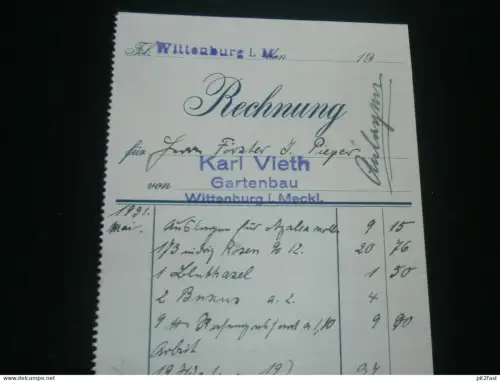 Wittenburg i. M. den 19
Rechnung
für Herrn Förster J. Pieper
Karl Vieth
von Gartenbau
Wittenburg i. Meckl.
1931.
Mai. Auslagen für Azalea mollis 9 15
173 niedrig Rosen % 12. 20 76
1 Bluthasel 1 50
2 Buxus a. 2. 4
9 a 1,10 9 90
Arbeit
34
www.delcampe.net
pik2fast